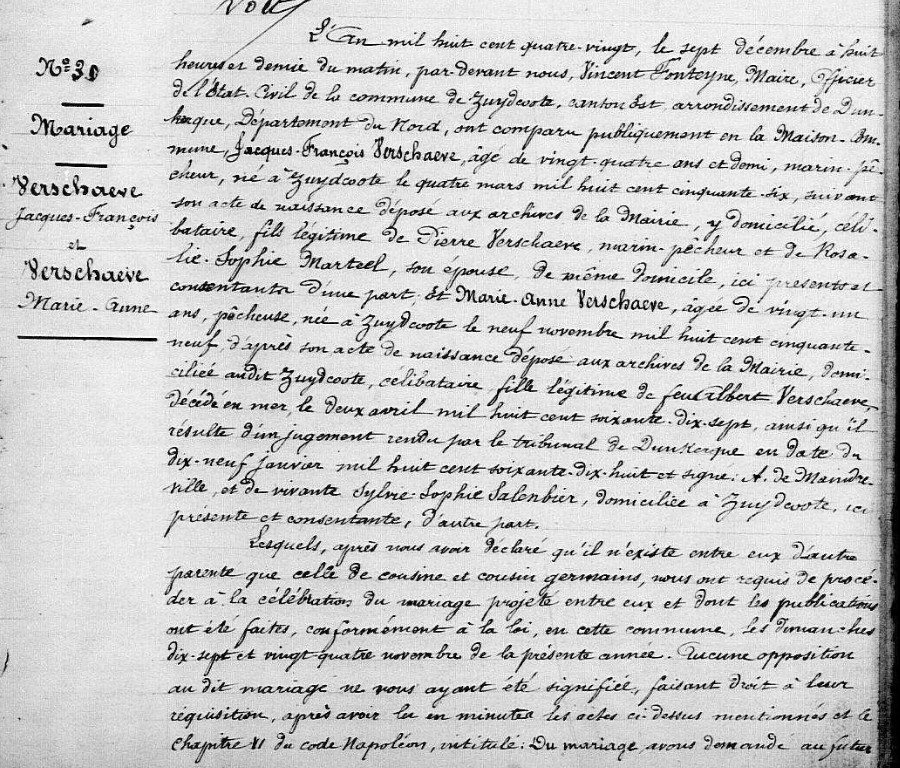 L'An mil huit cent quatre-vingt, le sept décembre à huit
heures et demie du matin, par-devant nous, Vincent Fonteyne, Maire, Officier
de l'État-Civil de la commune de Zuydcoote, canton Est, arrondissement de Dun-
kerque, Département du Nord, ont comparu publiquement en la Maison-Com-
mune, Jacques-François Verschaeve, âgé de vingt-quatre ans et demi, marin-pê-
cheur, né à Zuydcoote le quatre mars mil huit cent cinquante-six, suivant
son acte de naissance déposé aux archives de la Mairie, y domicilié, céli-
bataire, fils légitime de Pierre Verschaeve, marin-pêcheur et de Rosa-
lie-Sophie Marteel, son épouse, de même domicile, ici présents et
consentants d'une part; Et Marie-Anne Verschaeve, âgée de vingt-un
ans, pêcheuse, née à Zuydcoote le neuf novembre mil huit cent cinquante-
neuf, d'après son acte de naissance déposé aux archives de la Mairie, domi-
ciliée audit Zuydcoote, célibataire, fille légitime de feu Albert Verschaeve,
décédé en mer, le deux avril mil huit cent soixante-dix-sept, ainsi qu'il
résulte d'un jugement rendu par le tribunal de Dunkerque en date du
dix-neuf janvier mil huit cent soixante-dix-huit et signé: A. de Maindre
ville, et de vivante Sylvie-Sophie Salenbier, domiciliée à Zuydcoote, ici
présente et consentante, d'autre part.
Lesquels, après nous avoir déclaré qu'il n'existe entre eux d'autre
parenté que celle de cousine et cousin germains, nous ont requis de procé-
der à la célébration du mariage projeté entre eux et dont les publications
ont été faites, conformément à la loi, en cette commune, les dimanches
dix-sept et vingt-quatre novembre de la présente année. Aucune opposition
au dit mariage ne nous ayant été signifiée, faisant droit à leur
réquisition, après avoir lu en minutes les actes ci-dessus mentionnés et le
chapitre VI du code Napoléon, intitulé: Du mariage, avons demandé au futur
Mariage
Verschaeve
Jacques-François
et
Verschaeve
Marie-Anne